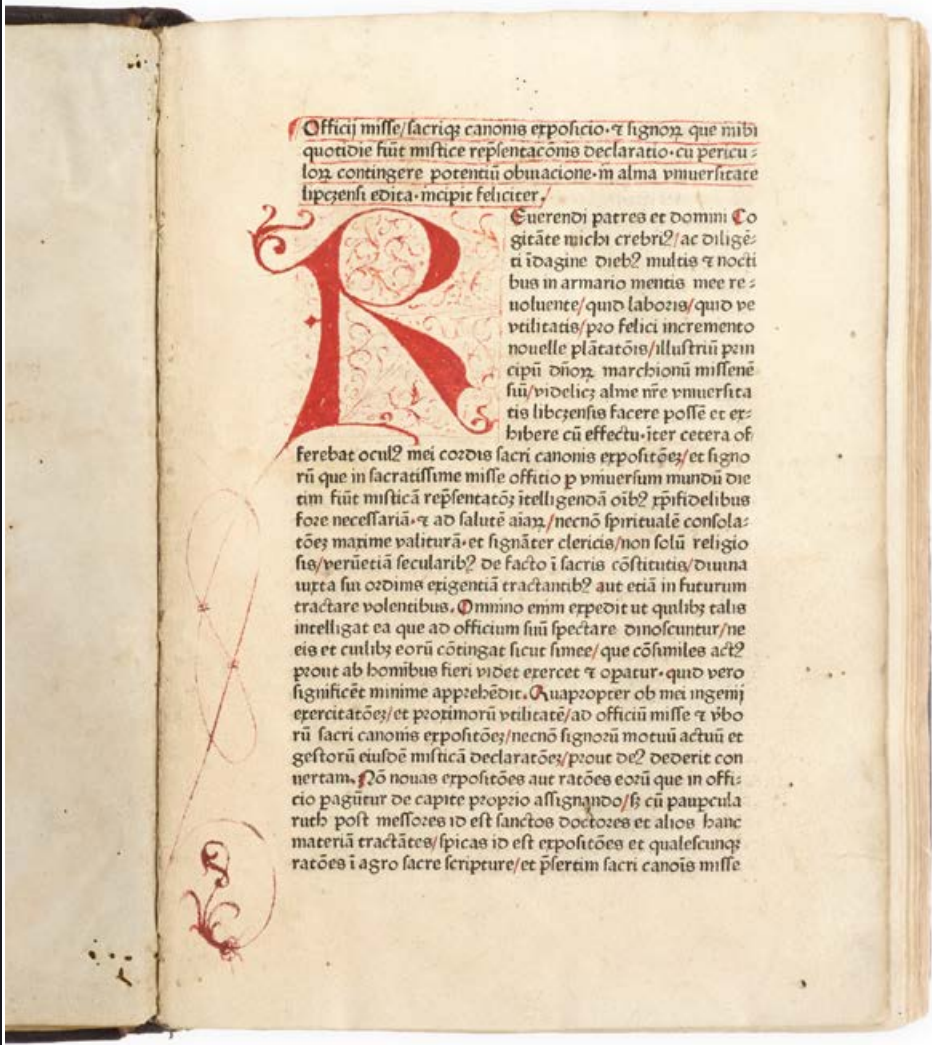 Officij misse/sacriqꝫ canonis exposicio·⁊ signoꝝ que mibi
quotidie fiūt mistice rep̄sentacōnis declaratio·cū pericu⸗
loꝝ contingere potentiū obuiacione·in alma vniuersitate
lipczensi edita·incipit feliciter./
REuerendi patres et domini Co
gitāte michi crebriꝰ/ac diligē⸗
ti īdagine diebꝰ multis ⁊ nocti
bus in armario mentis mee re⸗
uoluente/quid laboris/quid ve
vtilitatis/pro felici incremento
nouelle plātatōis/illustriū prin
cipū dñoꝝ marchionū missenē
siū/videlicꝫ alme nr̄e vniuersita
tis libczensis facere possē et ex⸗
hibere cū effectu·īter cetera of
ferebat oculꝰ mei cordis sacri canonis expositōeꝫ/et signo
rū que in sacratissime misse offitio ꝑ vniuersum mundū die
tim fiūt misticā rep̄sentatōꝫ ītelligendā oībꝰ xp̄ifidelibus
fore necessariā·⁊ ad salutē aīaꝝ/necnō spiritualē consola⸗
tōeꝫ maxime valiturā·et signāter clericis/non solū religio
sis/verūetiā secularibꝰ de facto ī sacris cōstitutis/diuina
iuxta sui ordinis exigentiā tractantibꝰ aut etiā in futurum
tractare volentibus. Omnino enim expedit ut quilibꝫ talis
intelligat ea que ad officium suū spectare dinoscuntur/ne
eis et cuilibꝫ eorū cōtingat sicut simee/que cōsimiles actꝰ
prout ab hominibus fieri videt exercet ⁊ opatur·quid vero
significēt minime apprehēdit. Quapropter ob mei ingenij
exercitatōeꝫ/et proximorū vtilitatē/ad officiū misse ⁊ v̄bo
rū sacri canonis expositōeꝫ/necnō signorū motuū actuū et
gestorū eiusdē misticā declaratōeꝫ/prout deꝰ dederit con
uertam. Nō nouas expositōes aut ratōes eorū que in offi⸗
cio pagūtur de capite proprio assignando/sꝫ cū paupcula
ruth post messores id est sanctos doctores et alios hanc
materiā tractātes/spicas id est expositōes et qualescunqꝫ
ratōes ī agro sacre scripture/et p̄sertim sacri canoīs misse